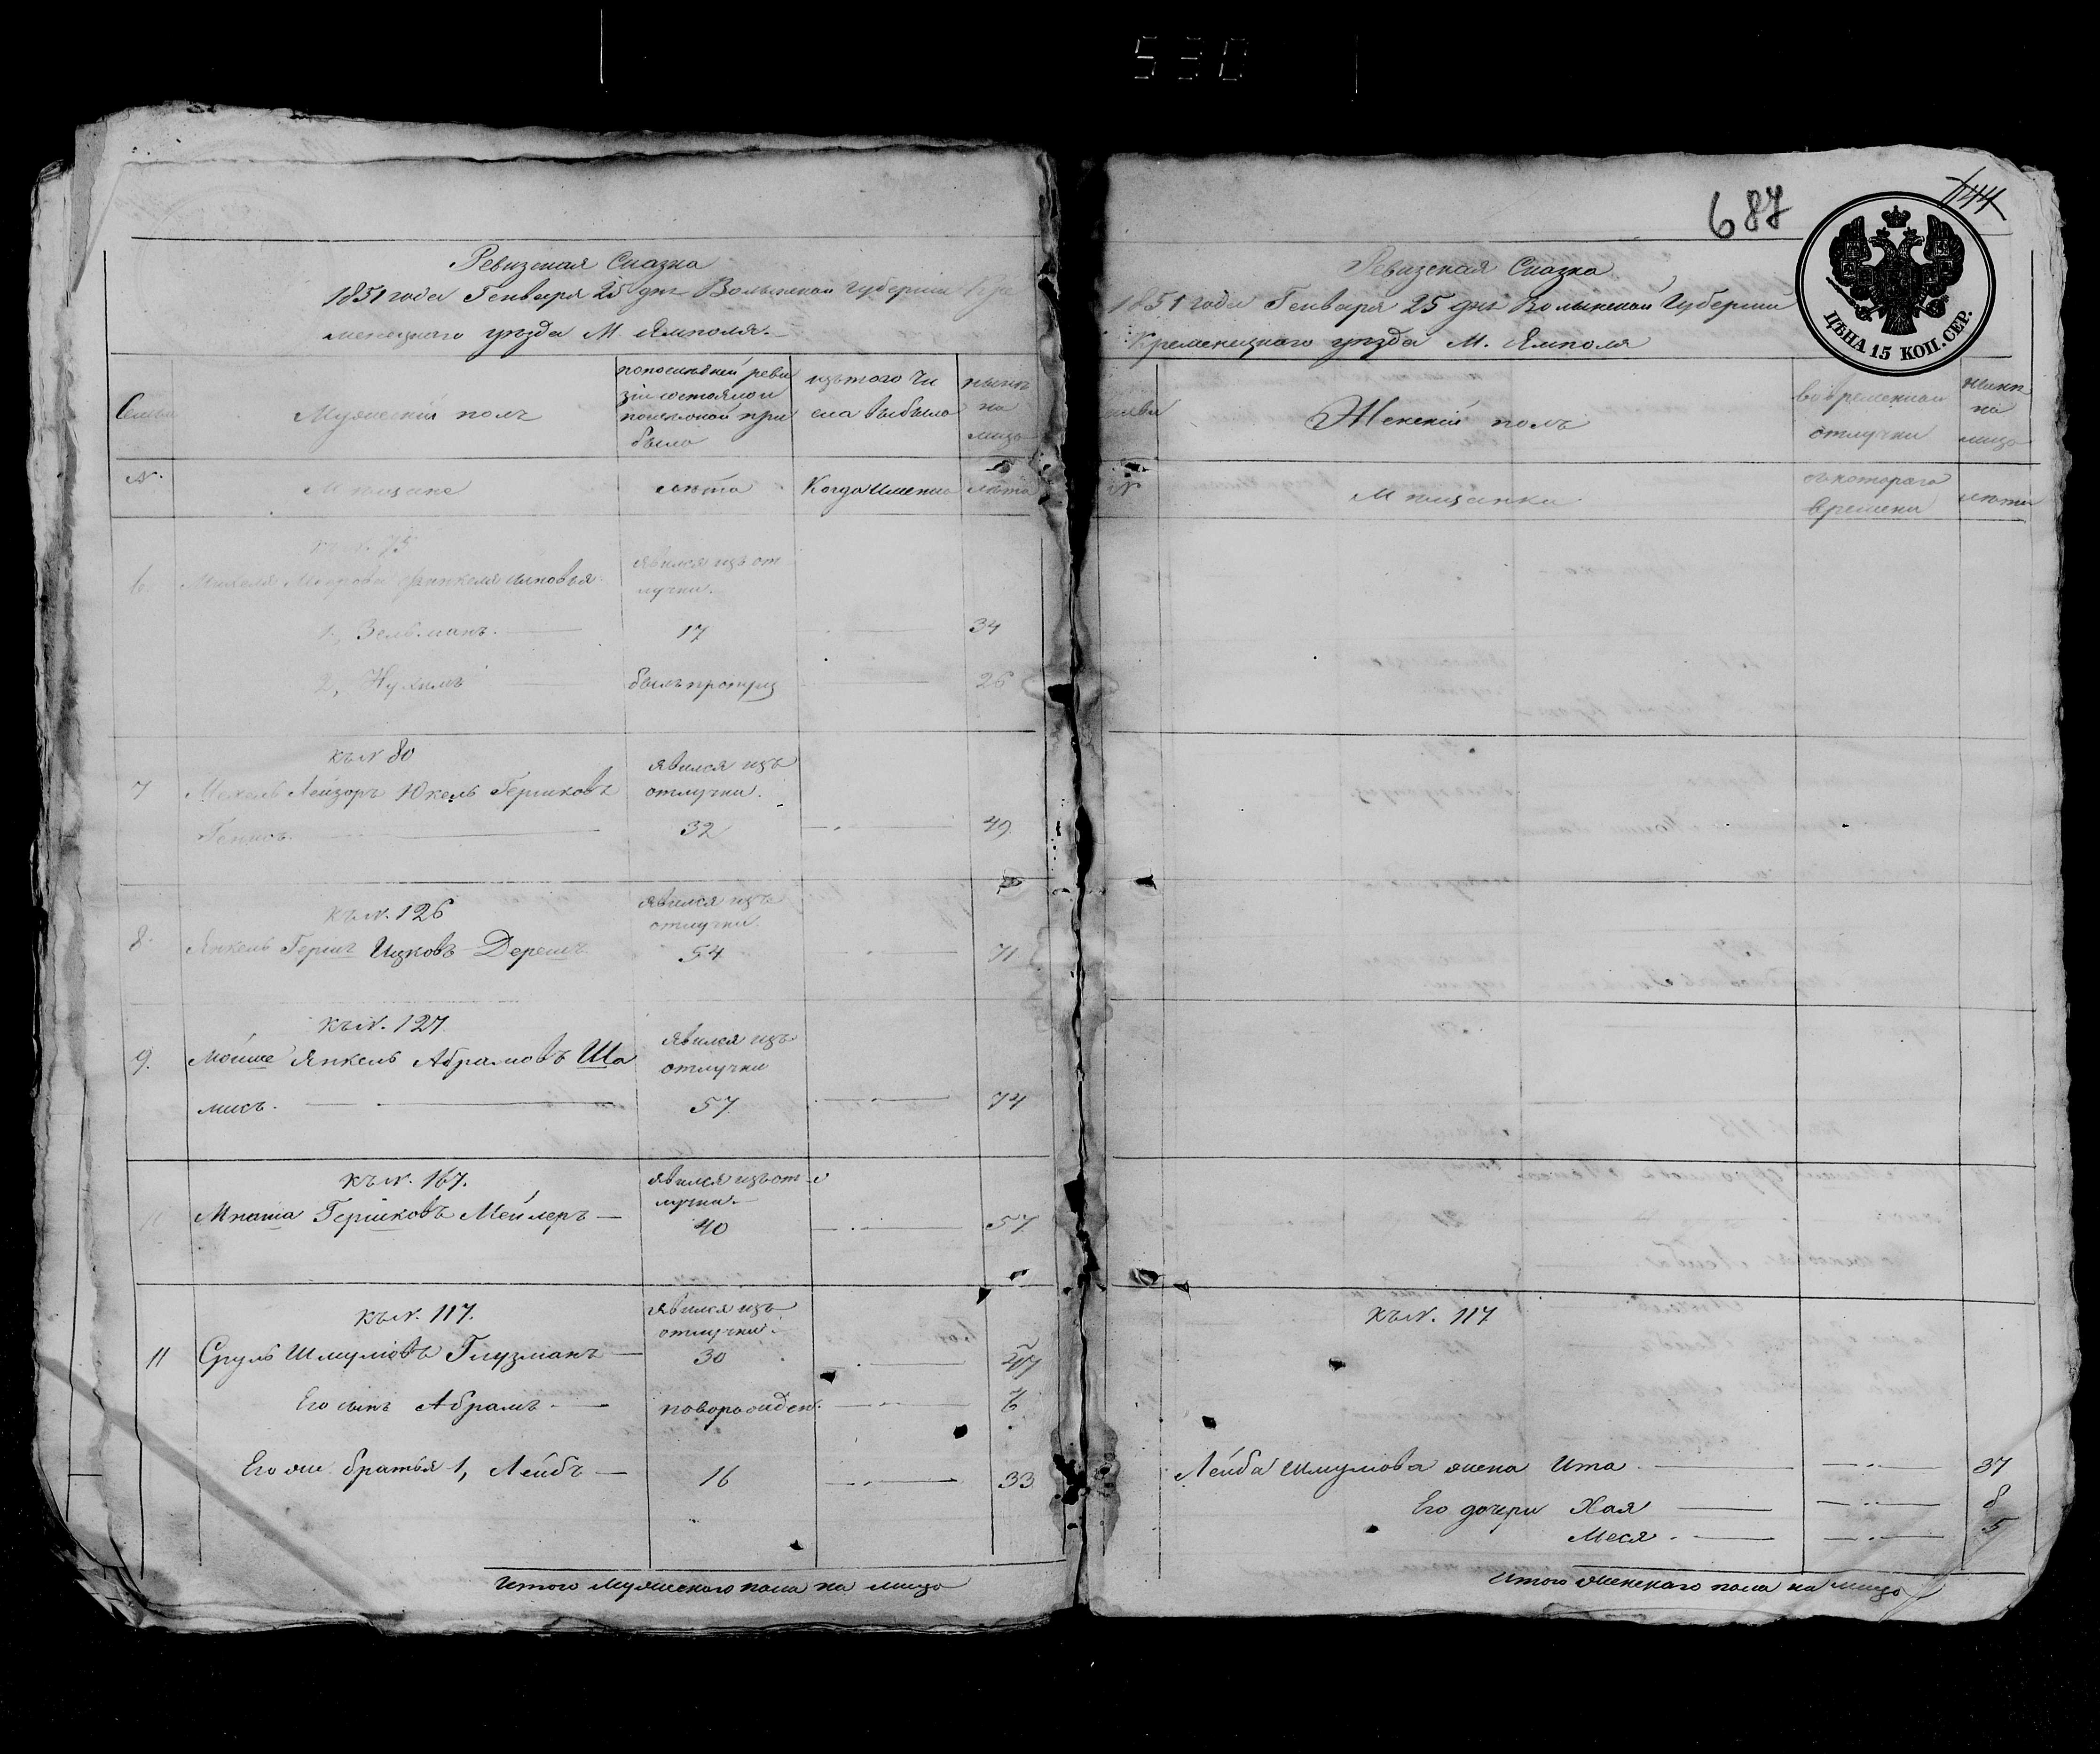 530
Ревизская Сказка
1851 года Генваря 25 дня Волынской Губернии Кре
менецкого уезда М. Ямполя
Семьи
Мужеский полъ
по последней реви
зіи состояло и
после оной при
было
изъ того чи
сла выбыло
ныне
на
лицо
№.
Мещане
лета
Когда именно
лета
къ №. 75
6.
Финкеля сыновья
явился изъ от
лучки.
1, Зельманъ.
17
34
2,
былъ пропущ
26
къ № 80
7
Лейзоръ Юкель Гершковъ
явился изъ
отлучки.
32
49
къ №. 126
8.
Янкель Гершъ Ицковъ Дерешъ
явился изъ
отлучки
54
71
къ №. 127
9.
Мойше Янкель Абрамовъ Ша
мисъ.
явился изъ
отлучки
57
74
къ №. 167.
10
Гершковъ Мейлеръ
явился изъ от
лучки
40
57
къ №. 117.
11
Сруль Шмулювъ Глузманъ
явился изъ
отлучки.
30
47
Его сынъ Абрамъ
новорожден.
Его же братья 1, Лейбъ
16
33
Итого Мужескаго пола на лицо
687
144
ЦѢНА 15 КОП. СЕР.
Ревизская Сказка
1851 года Генваря 25 дня Волынской Губернии
Кременецкого уезда М. Ямполя
Женскій полъ
во временной
отлучки
ныне
на
лицо
№
Мещанки
съ котораго
времени
лета
къ №. 117
Лейба Шмулюва жена Ита
37
Его дочери Хая
8
Меся
5
Итого Женскаго пола на лицо